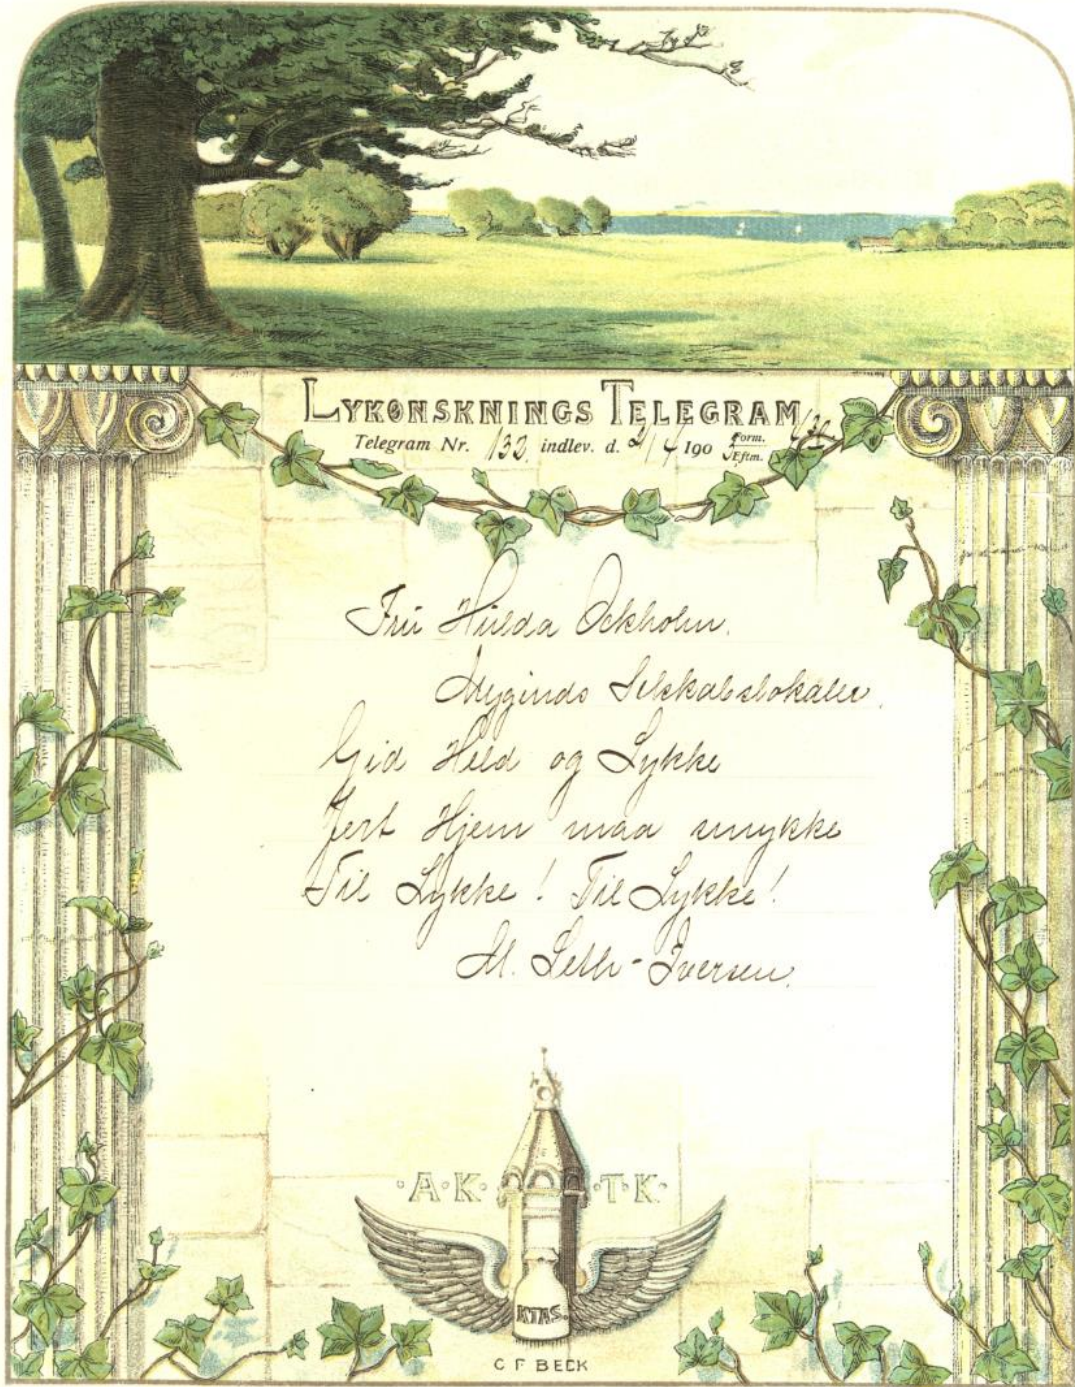 LYKØNSKNINGS TELEGRAM
Telegram Nr. 132. indlev. d. 2/4 1905 Form. Eftm.
Fru Hulda Ockholm.
Myginds Selskabslokaler.
Gid Held og Lykke
Jert Hjem maa smykke
Til Lykke! Til Lykke!
M. Seth-Iversen.
·A·K· ·T·K·
KTAS.
C F BECK